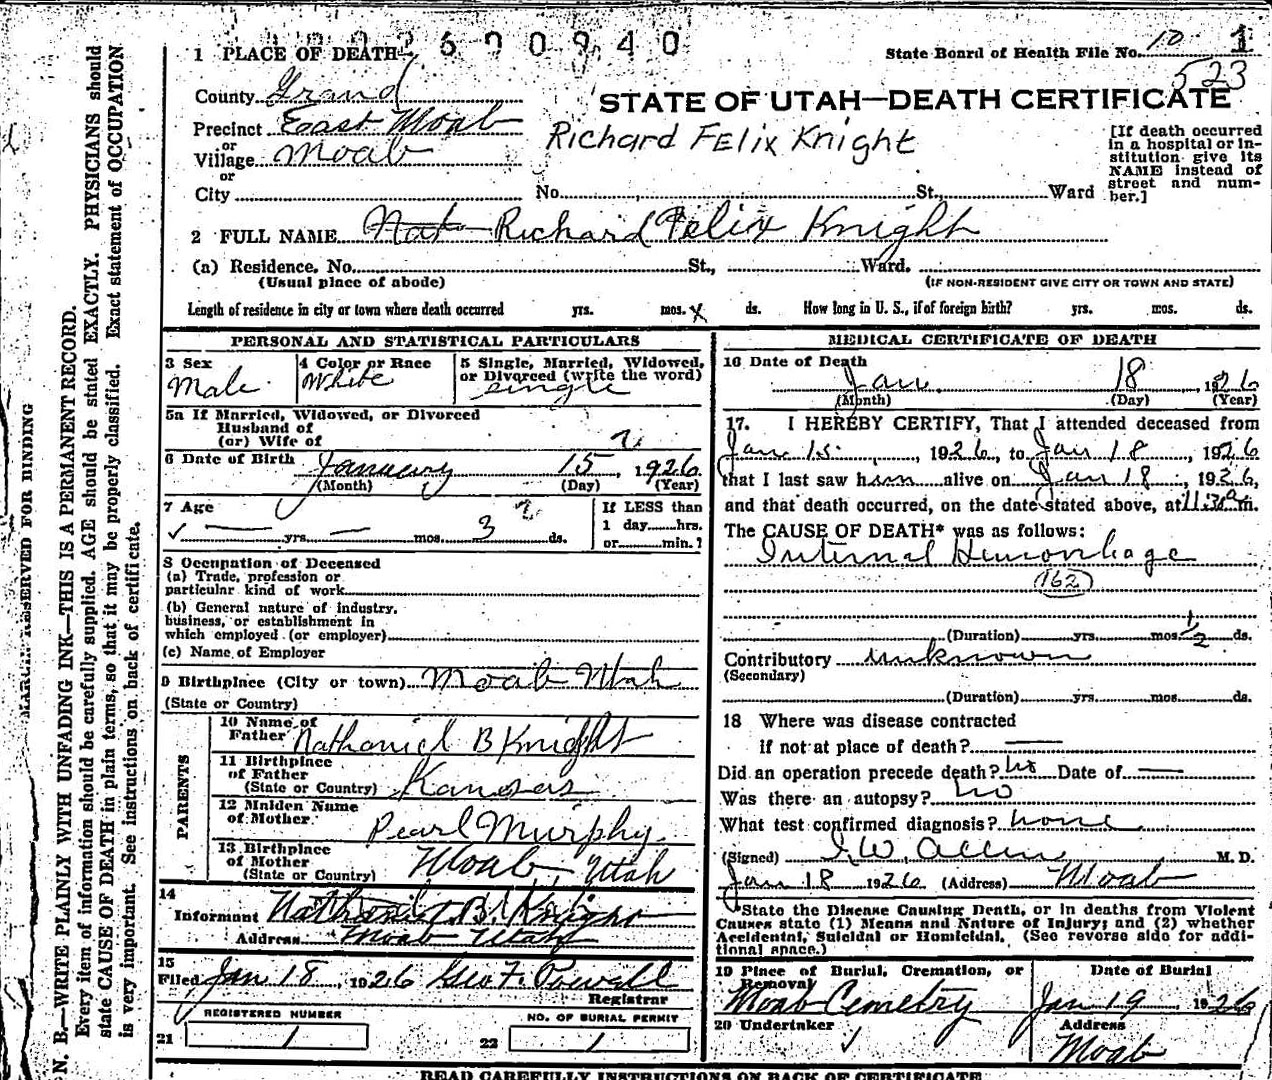 1 9 2 6 0 0 9 4 0
1 PLACE OF DEATH
State Board of Health File No. 10 1
523
County Grand
STATE OF UTAH—DEATH CERTIFICATE
Precinct East Moab
or
Village Moab
or
City
Richard Felix Knight
[If death occurred
in a hospital or in-
stitution give its
NAME instead of
street and num-
ber.]
No. St., Ward
2 FULL NAME Nat Richard Felix Knight
(a) Residence. No. St., Ward.
(Usual place of abode)
(IF NON-RESIDENT GIVE CITY OR TOWN AND STATE)
Length of residence in city or town where death occurred yrs. mos. x ds. How long in U. S., if of foreign birth? yrs. mos. ds.
PERSONAL AND STATISTICAL PARTICULARS
3 Sex
Male
4 Color or Race
White
5 Single, Married, Widowed,
or Divorced (write the word)
single
5a If Married, Widowed, or Divorced
Husband of
(or) Wife of
6 Date of Birth January 15, 1926
(Month) (Day) (Year)
7 Age
yrs. mos. 3 ds.
If LESS than
1 day hrs.
or min.?
8 Occupation of Deceased
(a) Trade, profession or
particular kind of work
(b) General nature of industry,
business, or establishment in
which employed (or employer)
(c) Name of Employer
9 Birthplace (City or town) Moab Utah
(State or Country)
PARENTS
10 Name of
Father Nathaniel B Knight
11 Birthplace
of Father
(State or Country) Kansas
12 Maiden Name
of Mother Pearl Murphy
13 Birthplace
of Mother
(State or Country) Moab, Utah
14
Informant Nathaniel B. Knight
Address Moab Utah
15
Filed Jan 18, 1926 Geo F. Powell
Registrar
REGISTERED NUMBER
21 1
NO. OF BURIAL PERMIT
22 1
MEDICAL CERTIFICATE OF DEATH
16 Date of Death
Jan. 18, 1926
(Month) (Day) (Year)
17. I HEREBY CERTIFY, That I attended deceased from
Jan 15, 1926, to Jan 18, 1926
that I last saw him alive on Jan 18, 1926,
and that death occurred, on the date stated above, at 11:30 a m.
The CAUSE OF DEATH* was as follows:
Internal Hemorrhage
162
(Duration) yrs. mos. 1/2 ds.
Contributory unknown
(Secondary)
(Duration) yrs. mos. ds.
18 Where was disease contracted
if not at place of death?
Did an operation precede death? no Date of
Was there an autopsy? no
What test confirmed diagnosis? none
(Signed) I.W. Allen M. D.
Jan 18 1926 (Address) Moab
*State the Disease Causing Death, or in deaths from Violent
Causes state (1) Means and Nature of Injury; and (2) whether
Accidental, Suicidal or Homicidal. (See reverse side for addi-
tional space.)
19 Place of Burial, Cremation, or
Removal
Moab Cemetery
Date of Burial
Jan 19 1926
20 Undertaker
Address
Moab
READ CAREFULLY INSTRUCTIONS ON BACK OF CERTIFICATE
MARGIN RESERVED FOR BINDING
N. B.—WRITE PLAINLY WITH UNFADING INK—THIS IS A PERMANENT RECORD.
Every item of information should be carefully supplied. AGE should be stated EXACTLY. PHYSICIANS should
state CAUSE OF DEATH in plain terms, so that it may be properly classified. Exact statement of OCCUPATION
is very important. See instructions on back of certificate.